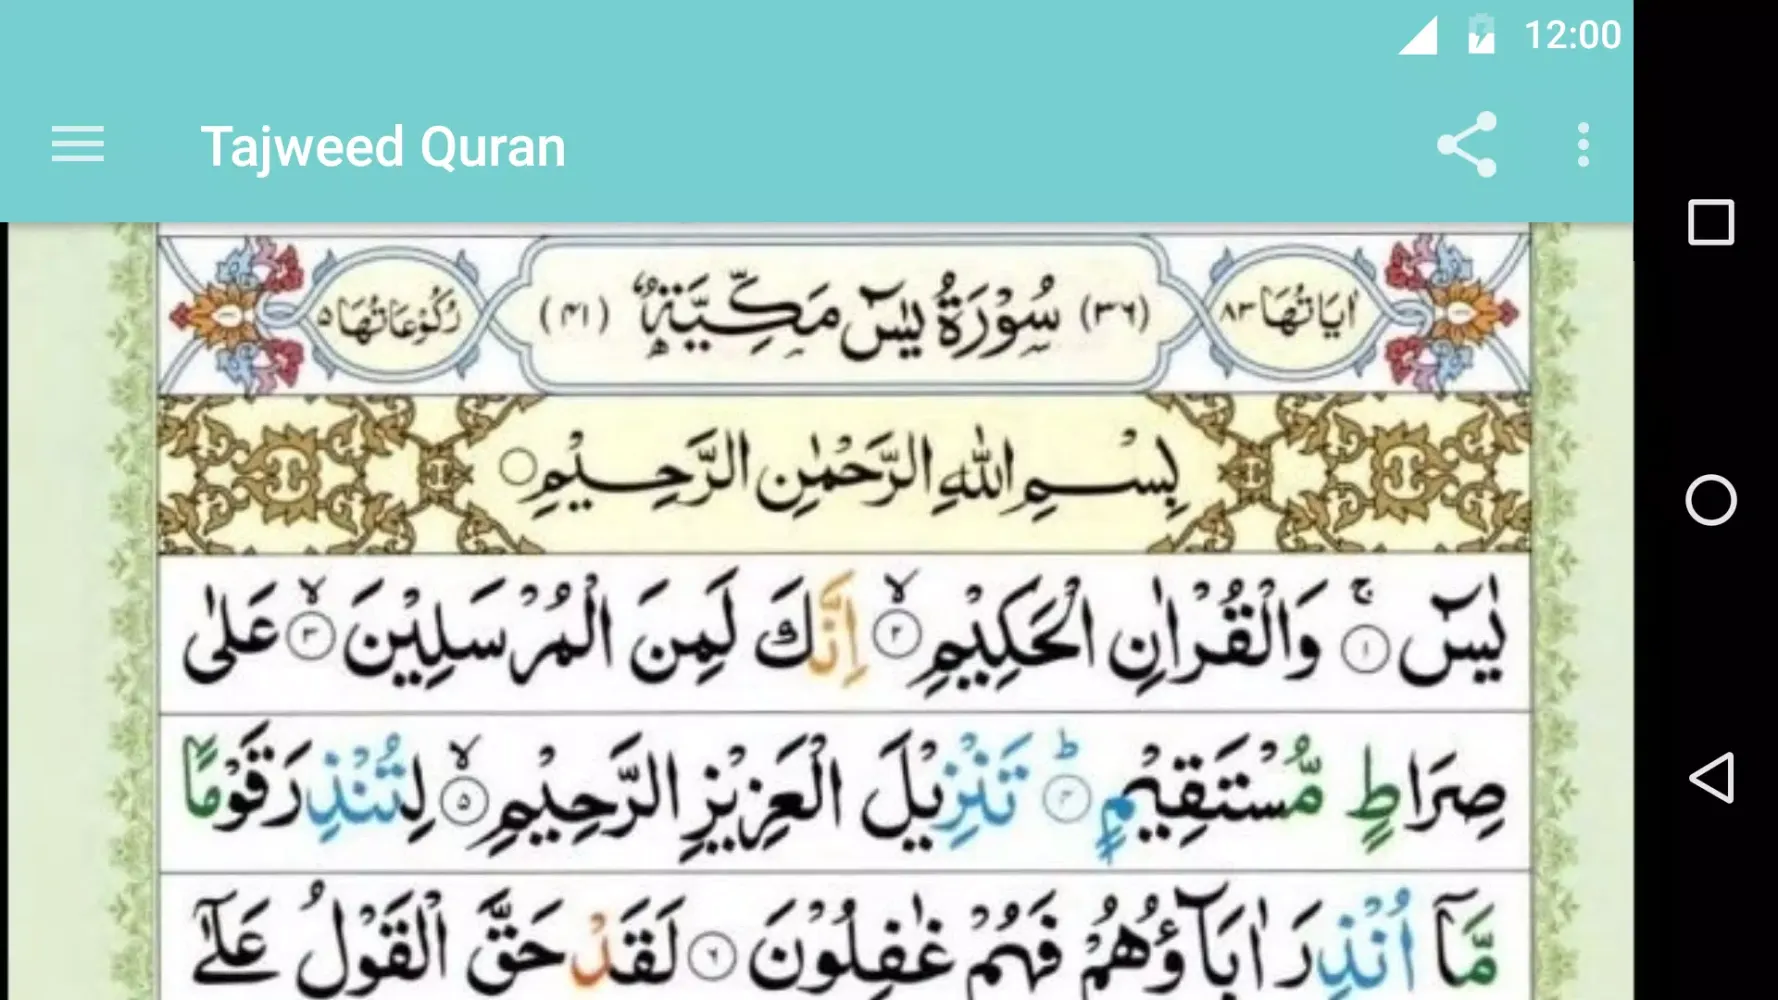 12:00
Tajweed Quran
اٰيَاتُهَا ٨٣
(٣٦) سُوْرَةُ يٰسٓ مَكِّيَّةٌ (٤١)
رُكُوْعَاتُهَا ٥
بِسْمِ اللّٰهِ الرَّحْمٰنِ الرَّحِيْمِ
يٰسٓ ۚ ١ وَالْقُرْاٰنِ الْحَكِيْمِ ۙ ٢ اِنَّكَ لَمِنَ الْمُرْسَلِيْنَ ۙ ٣ عَلٰى
صِرَاطٍ مُّسْتَقِيْمٍ ؕ ٤ تَنْزِيْلَ الْعَزِيْزِ الرَّحِيْمِ ۙ ٥ لِتُنْذِرَ قَوْمًا
مَّآ اُنْذِرَ اٰبَآؤُهُمْ فَهُمْ غٰفِلُوْنَ ٦ لَقَدْ حَقَّ الْقَوْلُ عَلٰٓى